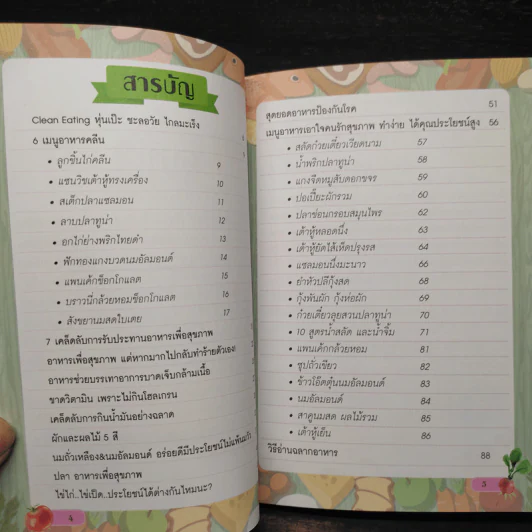 สารบัญ
Clean Eating หุ่นเป๊ะ ชะลอวัย ไกลมะเร็ง
6 เมนูอาหารคลีน
• ลูกชิ้นไก่คลีน 9
• แซนวิชเต้าหู้ทรงเครื่อง 10
• สเต็กปลาแซลมอน 11
• ลาบปลาทูน่า 12
• อกไก่ย่างพริกไทยดำ 13
• ฟักทองแกงบวดนมอัลมอนด์ 14
• แพนเค้กช็อกโกแลต 15
• บราวนี่กล้วยหอมช็อกโกแลต 16
• สังขยานมสดใบเตย 17
7 เคล็ดลับการรับประทานอาหารเพื่อสุขภาพ
อาหารเพื่อสุขภาพ แต่หากมากไปกลับทำร้ายตัวเอง!
อาหารช่วยบรรเทาอาการบาดเจ็บกล้ามเนื้อ
ขาดวิตามิน เพราะไม่กินโฮลเกรน
เคล็ดลับการกินน้ำมันอย่างฉลาด
ผักและผลไม้ 5 สี
นมถั่วเหลือง&นมอัลมอนด์ อร่อยดีมีประโยชน์ไม่แพ้นมวัว
ปลา อาหารเพื่อสุขภาพ
ไข่ไก่..ไข่เป็ด..ประโยชน์ได้ต่างกันไหมนะ?
4
สุดยอดอาหารป้องกันโรค 51
เมนูอาหารเอาใจคนรักสุขภาพ ทำง่าย ได้คุณประโยชน์สูง 56
• สลัดก๋วยเตี๋ยวเวียดนาม 57
• น้ำพริกปลาทูน่า 58
• แกงจืดหมูสับดอกขจร 59
• ปอเปี๊ยะผักรวม 60
• ปลาช่อนกรอบสมุนไพร 62
• เต้าหู้หลอดนึ่ง 63
• เต้าหู้ยัดไส้เห็ดปรุงรส 64
• แซลมอนนึ่งมะนาว 66
• ยำหัวปลีกุ้งสด 68
• กุ้งพันผัก กุ้งห่อผัก 69
• ก๋วยเตี๋ยวลุยสวนปลาทูน่า 70
• 10 สูตรน้ำสลัด และน้ำจิ้ม 71
• แพนเค้กกล้วยหอม 81
• ซุปถั่วเขียว 82
• ข้าวโอ๊ตตุ๋นนมอัลมอนด์ 83
• นมอัลมอนด์ 84
• สาคูนมสด ผลไม้รวม 85
• เต้าหู้เย็น 86
วิธีอ่านฉลากอาหาร 88
5